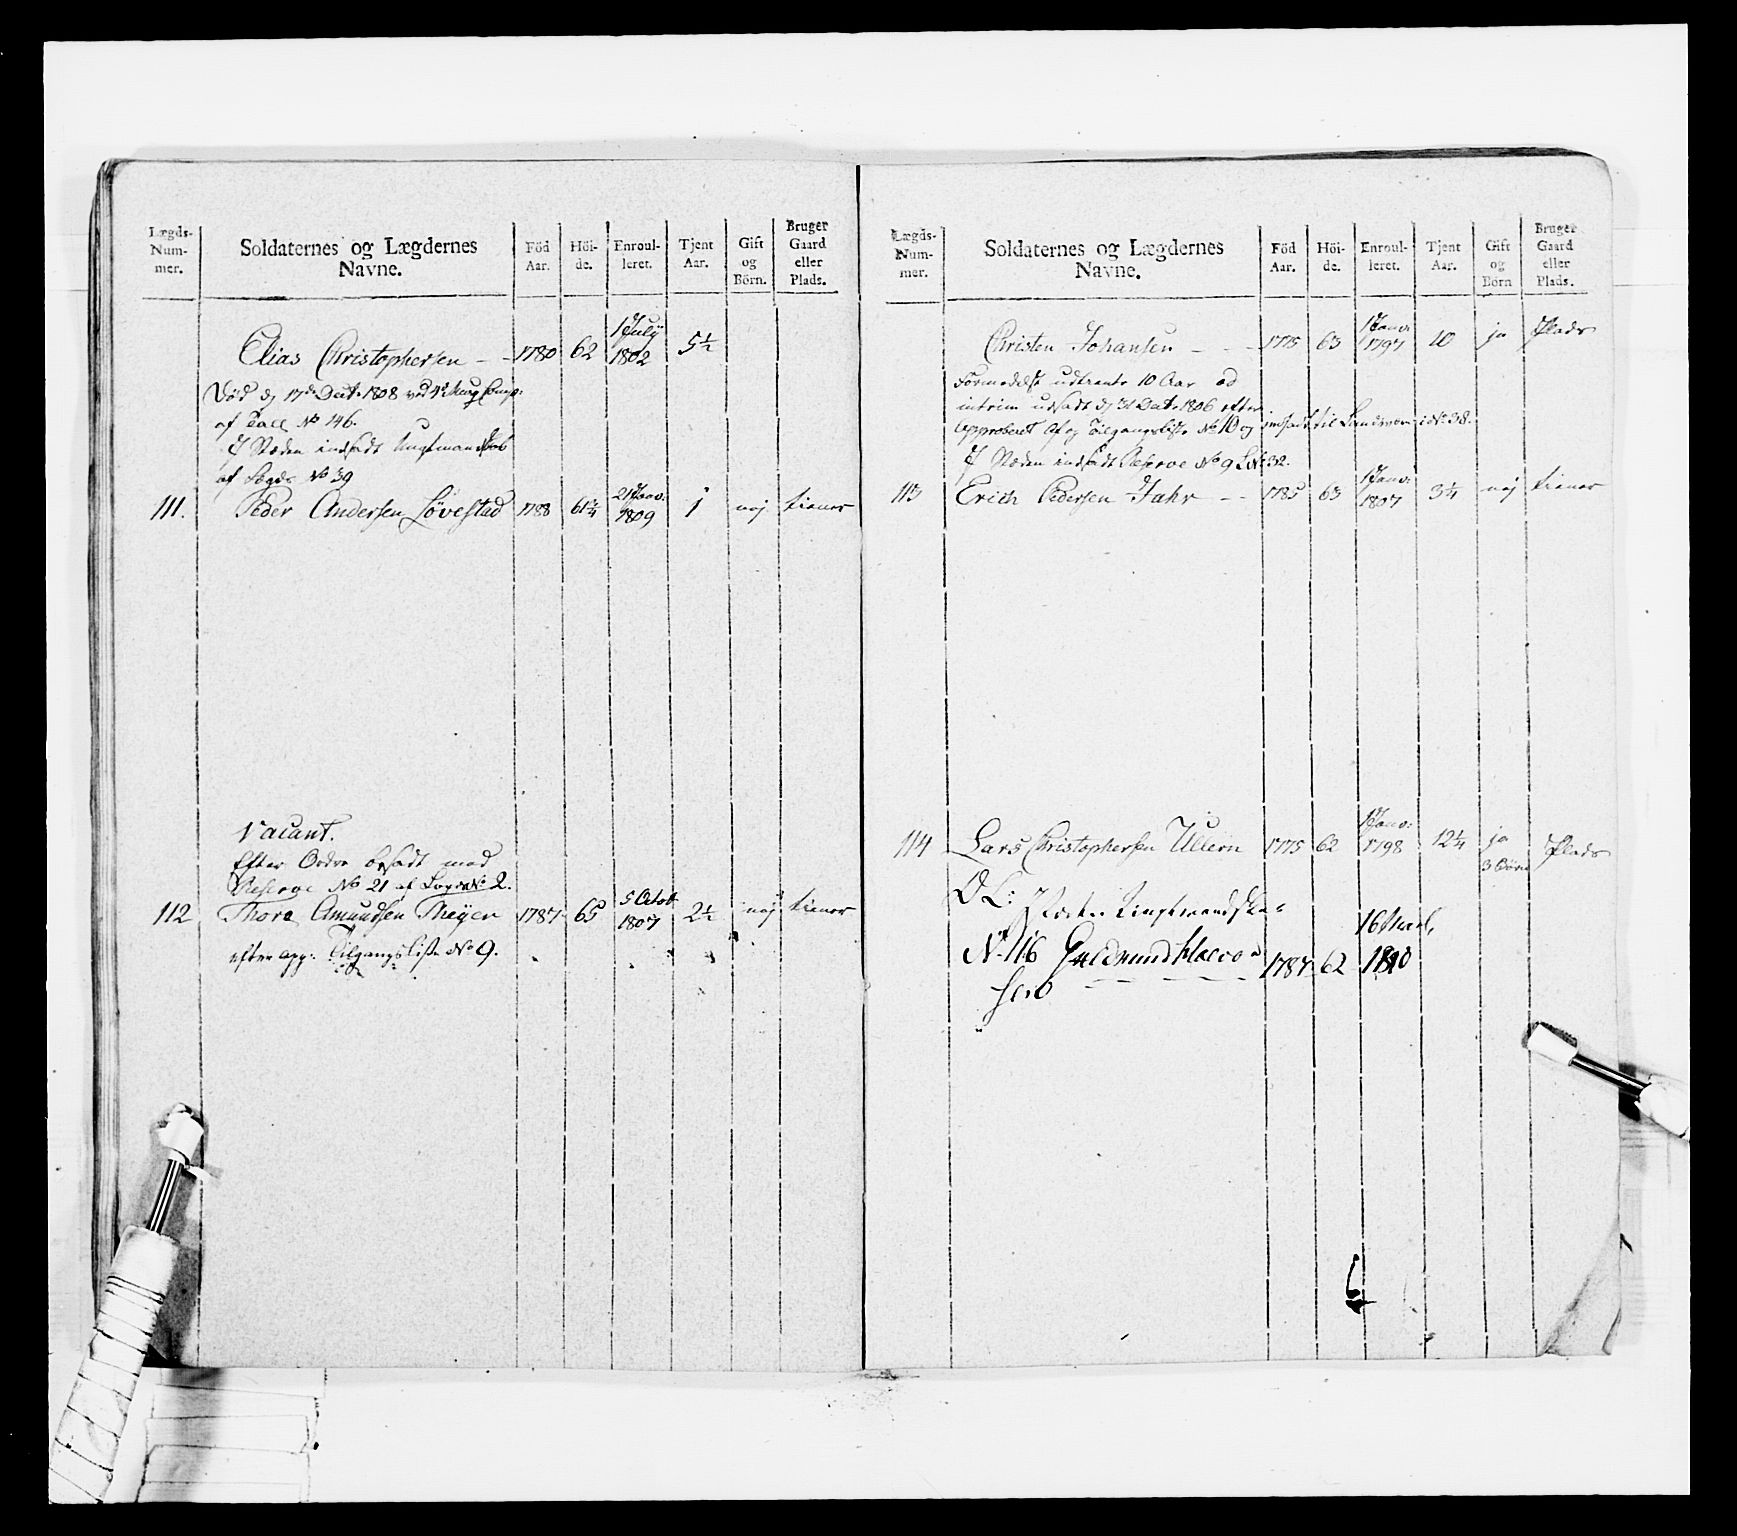 Lægds-Num-mer. Soldaternes og Lægdernes Navne. Föd Aar. Höi-de. Enroul-leret. Tjent Aar. Gift og Börn. Bruger Gaard eller Plads.
Elias Christophersen - - 1780 62 1 July 1802 5½
Död d 17de Dect. 1808 ved
af Tall No 146.
I Stæden indsadt
af Lægds No 39
111. Peder Andersen Løvestad 1788 61¼ 21 Janv. 1809 1 nej tiener
Vacant.
Efter Ordre besadt med
Reserve No 21 af Lægds No 2.
112 Thore Amundsen Meyer 1787 65 5 Octob. 1807 2½ nej tiener
efter app: Tilgangsliste No 9.
Lægds-Num-mer. Soldaternes og Lægdernes Navne. Föd Aar. Höi-de. Enroul-leret. Tjent Aar. Gift og Börn Bruger Gaard eller Plads.
Christen Johansen - - - 1775 63 1 Janv. 1797 10 ja Plads
Formedelst udtiente 10 Aar ad
intrim udsadt d 31 Dect. 1806 efter
approberet Af og Tilgangsliste No 10 og indsadt til Landeværn No 38.
I Stæden indsadt Reserve No 9 32.
113 Erich Pedersen Jahr - - 1785 63 1 Janv. 1807 3¼ nej tiener
114 Lars Christophersen Ullern 1775 62 1 Janv: 1798 12¼ ja 3 Börn Plads
No 116 1787 62 16 1810